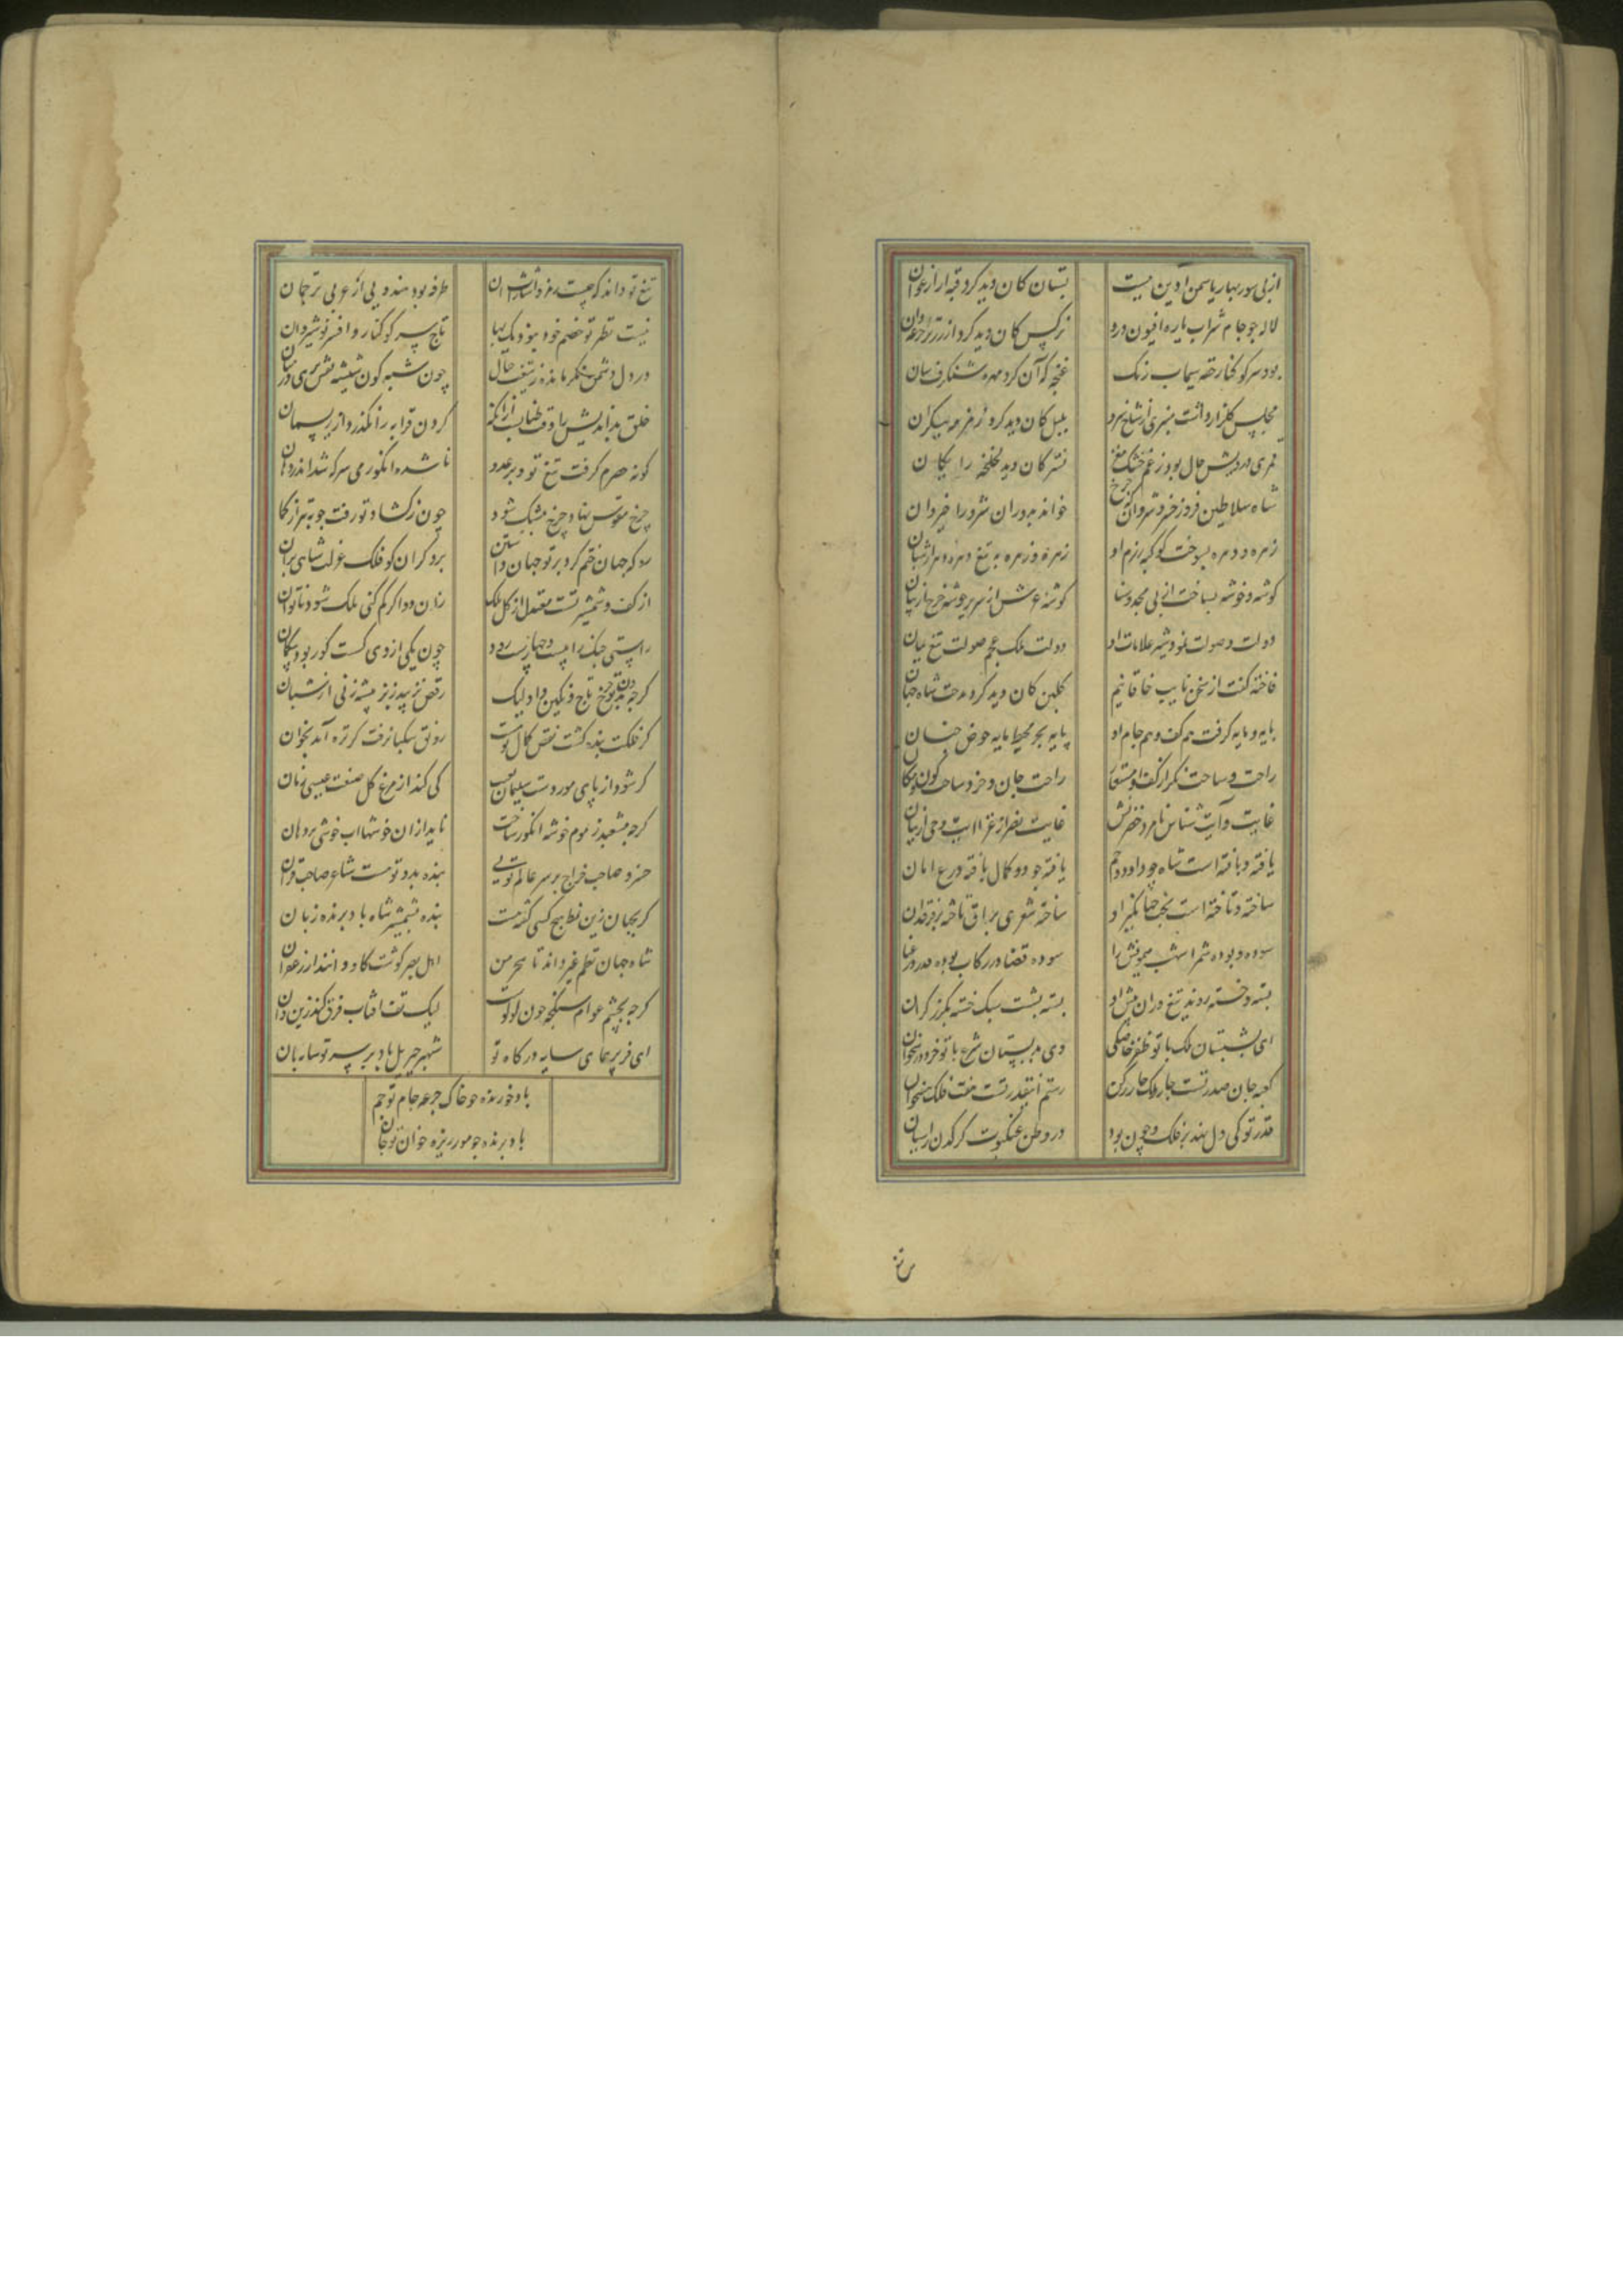 از پی سور بهار یاسمن آذین ببست
بستان کان دید کرد قبه از ارغوان
لاله چو جام شراب پاره افیون درو
نرکس کان دید کرد از زر تر جرعه دان
بود سر کوکنار حقه سیماب رنک
غنچه که آن کرد مهره شنکرف سان
مجلس کلزار داشت منبری از شاخ سرو
بلبل کان دید کرد زمزمه بیکران
قمری درویش حال بود ز غم خشک مغز
نسترکان دید لخلخه رایکان
شاه سلاطین فروز خسرو شروان که چرخ
خواند بدوران شرو را خیروان
زهره و دهره بسوخت کوکبه رزم او
زهره زهره به تیغ دهره دهر از سنان
کوشه و خوشه بساخت از پی مجد و سنا
کوشه عرش از سریر خوشه چرخ از بنان
دولت و صولت نمود شیر علامات او
دولت ملک عجم صولت تیغ یمان
فاخته کفت از سخن نایب خاقانیم
کلبن کان دید کرد مدحت شاه جهان
پایه و مایه کرفت هم کف و هم جام او
پایه بحر محیط مایه حوض جنان
راحت و ساحت نکر از کف او مستعار
راحت جان و خرد ساحت کون و مکان
غایت و آیت شناس نامزد خضرتش
غایت نصر از غزا آیت وحی از بیان
یافته و بافته است شاه چو داود و جم
یافته جود و کمال بافته درع امان
ساخته و تاخته است بخت جهانکیر او
ساخته شعری براق تاخته بر فرقدان
سوده و بوده شمر اشهب میمونش را
سوده قضا در رکاب بوده قدر در عنان
بسته و خسته روند تیغ وران پیش او
بسته بشست سبک خسته بکرز کران
ای بشبستان ملک با تو ظفر خاصکی
وی بدبستان شرع با تو خرد درسخوان
کعبه جان صدر تست چار ملک چار رکن
رستم اینقدر تست هفت فلک هفتخوان
قدر تو کی دل نهد بر فلک و چون بود
در وطن عنکبوت کرکدن را سیان
تیغ تو داند که چیست رمز و اشارات آن
طرفه بود هندویی از عربی ترجمان
نیست نظیر تو خصم خود نبود یک بها
تاج سر کوکنار و افسر نوشیروان
در دل دشمن نکر مانده ز تیغت خیال
چون شبه کون شیشه نقش پری در میان
حلق بداندیش را وقت طناب
کردن قرابه را نکذرد از ریسمان
کونه حصرم کرفت تیغ تو و بر عدو
ناشده انکور می سرکه شد اندر دهان
چرخ مقوس نهاد چرخ مشبک شود
چون ز کشاد تو رفت چوبه تیر از کمان
رو که جهان ختم کرد بر تو جهان داشتن
برد کران کو فلک غزلت شاهی بران
از کف و شمشیر تست معتدل ارکان ملک
زان دو اکر کم کنی ملک شود ناتوان
راستی جنک را هست و چهار است رود
چون یکی از وی کسست کور بود بیکمان
کرچه بدتر تو چرخ تاج و نکین داد لیک
رقص نزیبد ز بز پیشه زنی از شبان
کر فلکت بنده کشت نقص کمال تو نیست
رونق سکبا نرفت کر تره آمد بخوان
کر شود از پای مور دست سلیمان به عیب
کی کند از مرغ کل صنعت عیسی زیان
کرچه مشعبد ز موم خوشه انکور ساخت
ناید از ان خوشها آب خوشی در دهان
خسرو صاحب خراج بر سر عالم تویی
بنده بدور تو هست شاعر صاحب قران
کر بجهان زین نمط هیچ کسی کفته هست
بنده بشمشیر شاه باد بریده زبان
شاه جهان نظم غیر داند تا سحر من
اهل بصر کوشت کاو دانند از زعفران
کرچه بچشم عوام سنکچه چون لولوست
لیک تف آفتاب فرق کند زین و آن
ای فر پر همای سایه درکاه تو
شهپر جبریل باد بر سر تو سایه بان
باد خورنده چو خاک جرعه جام تو جم
باد برنده چو مور ریزه خوان تو جان
تیغ تو